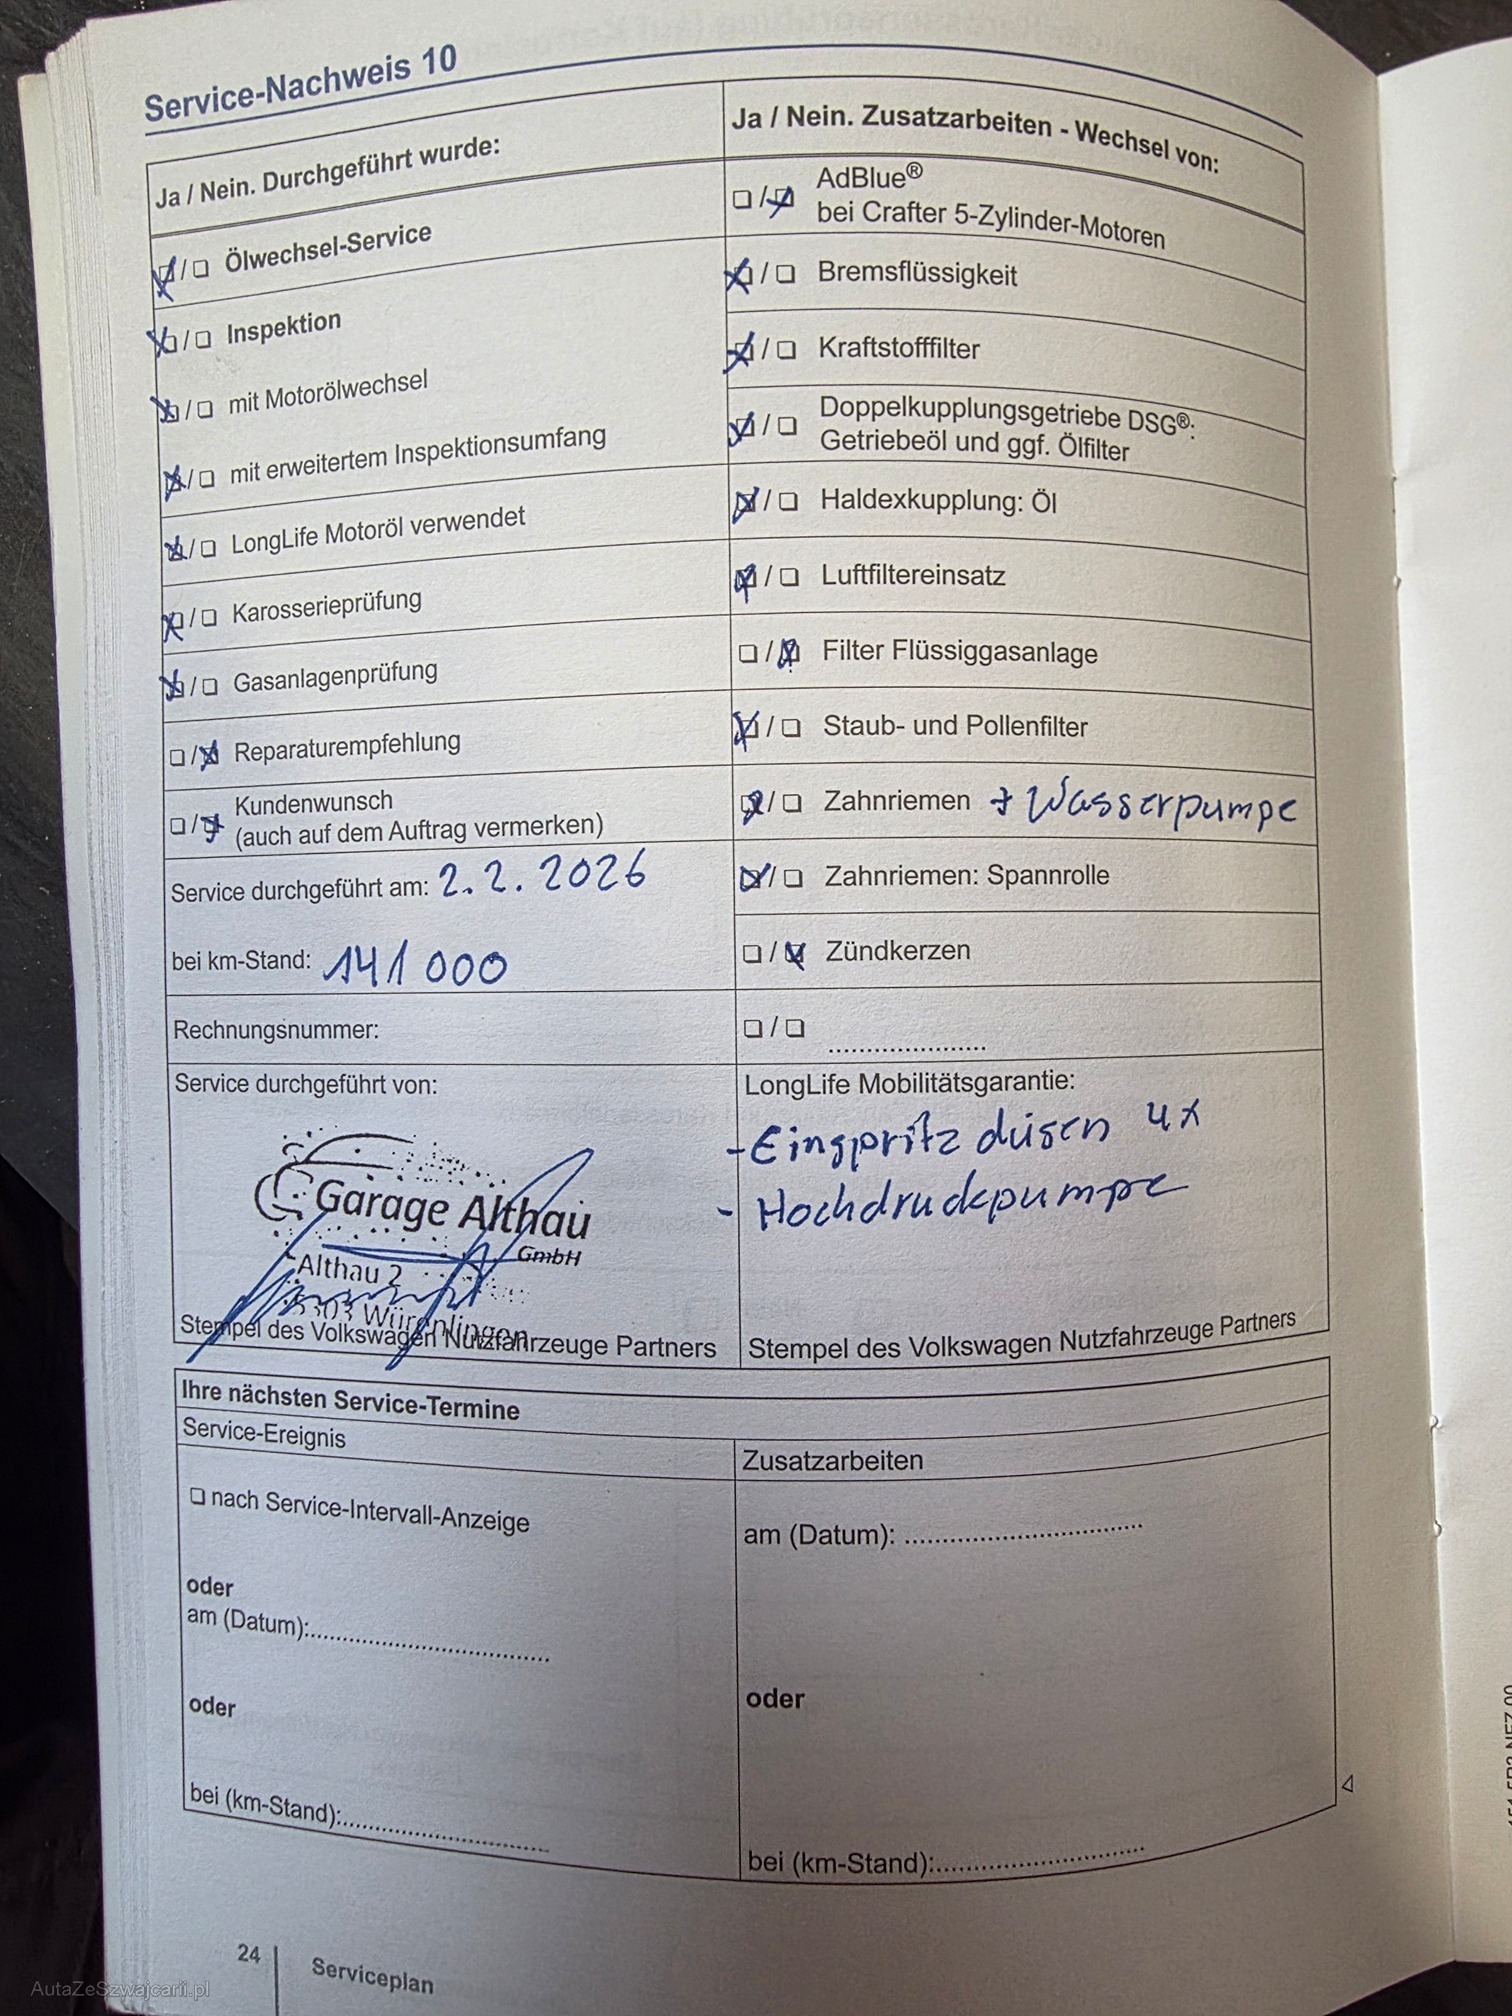 Service-Nachweis 10
Ja / Nein. Durchgeführt wurde:
☒/❏ Ölwechsel-Service
☒/❏ Inspektion
☒/❏ mit Motorölwechsel
☒/❏ mit erweitertem Inspektionsumfang
☒/❏ LongLife Motoröl verwendet
☒/❏ Karosserieprüfung
☒/❏ Gasanlagenprüfung
❏/☒ Reparaturempfehlung
❏/☒ Kundenwunsch
(auch auf dem Auftrag vermerken)
Service durchgeführt am: 2.2.2026
bei km-Stand: 141 000
Rechnungsnummer:
Service durchgeführt von:
Garage Althau
GmbH
Althau 2
5303 Würenlingen
Stempel des Volkswagen Nutzfahrzeuge Partners
Ja / Nein. Zusatzarbeiten - Wechsel von:
❏/☒ AdBlue®
bei Crafter 5-Zylinder-Motoren
☒/❏ Bremsflüssigkeit
☒/❏ Kraftstofffilter
☒/❏ Doppelkupplungsgetriebe DSG®:
Getriebeöl und ggf. Ölfilter
☒/❏ Haldexkupplung: Öl
☒/❏ Luftfiltereinsatz
❏/☒ Filter Flüssiggasanlage
☒/❏ Staub- und Pollenfilter
☒/❏ Zahnriemen + Wasserpumpe
☒/❏ Zahnriemen: Spannrolle
❏/☒ Zündkerzen
❏/❏ ......................
LongLife Mobilitätsgarantie:
- Eingpritzdüsen 4x
- Hochdruckpumpe
Stempel des Volkswagen Nutzfahrzeuge Partners
Ihre nächsten Service-Termine
Service-Ereignis
❏ nach Service-Intervall-Anzeige
oder
am (Datum):..................................
oder
bei (km-Stand):..............................
Zusatzarbeiten
am (Datum): ..................................
oder
bei (km-Stand):..............................
24 Serviceplan
AutaZeSzwajcarii.pl